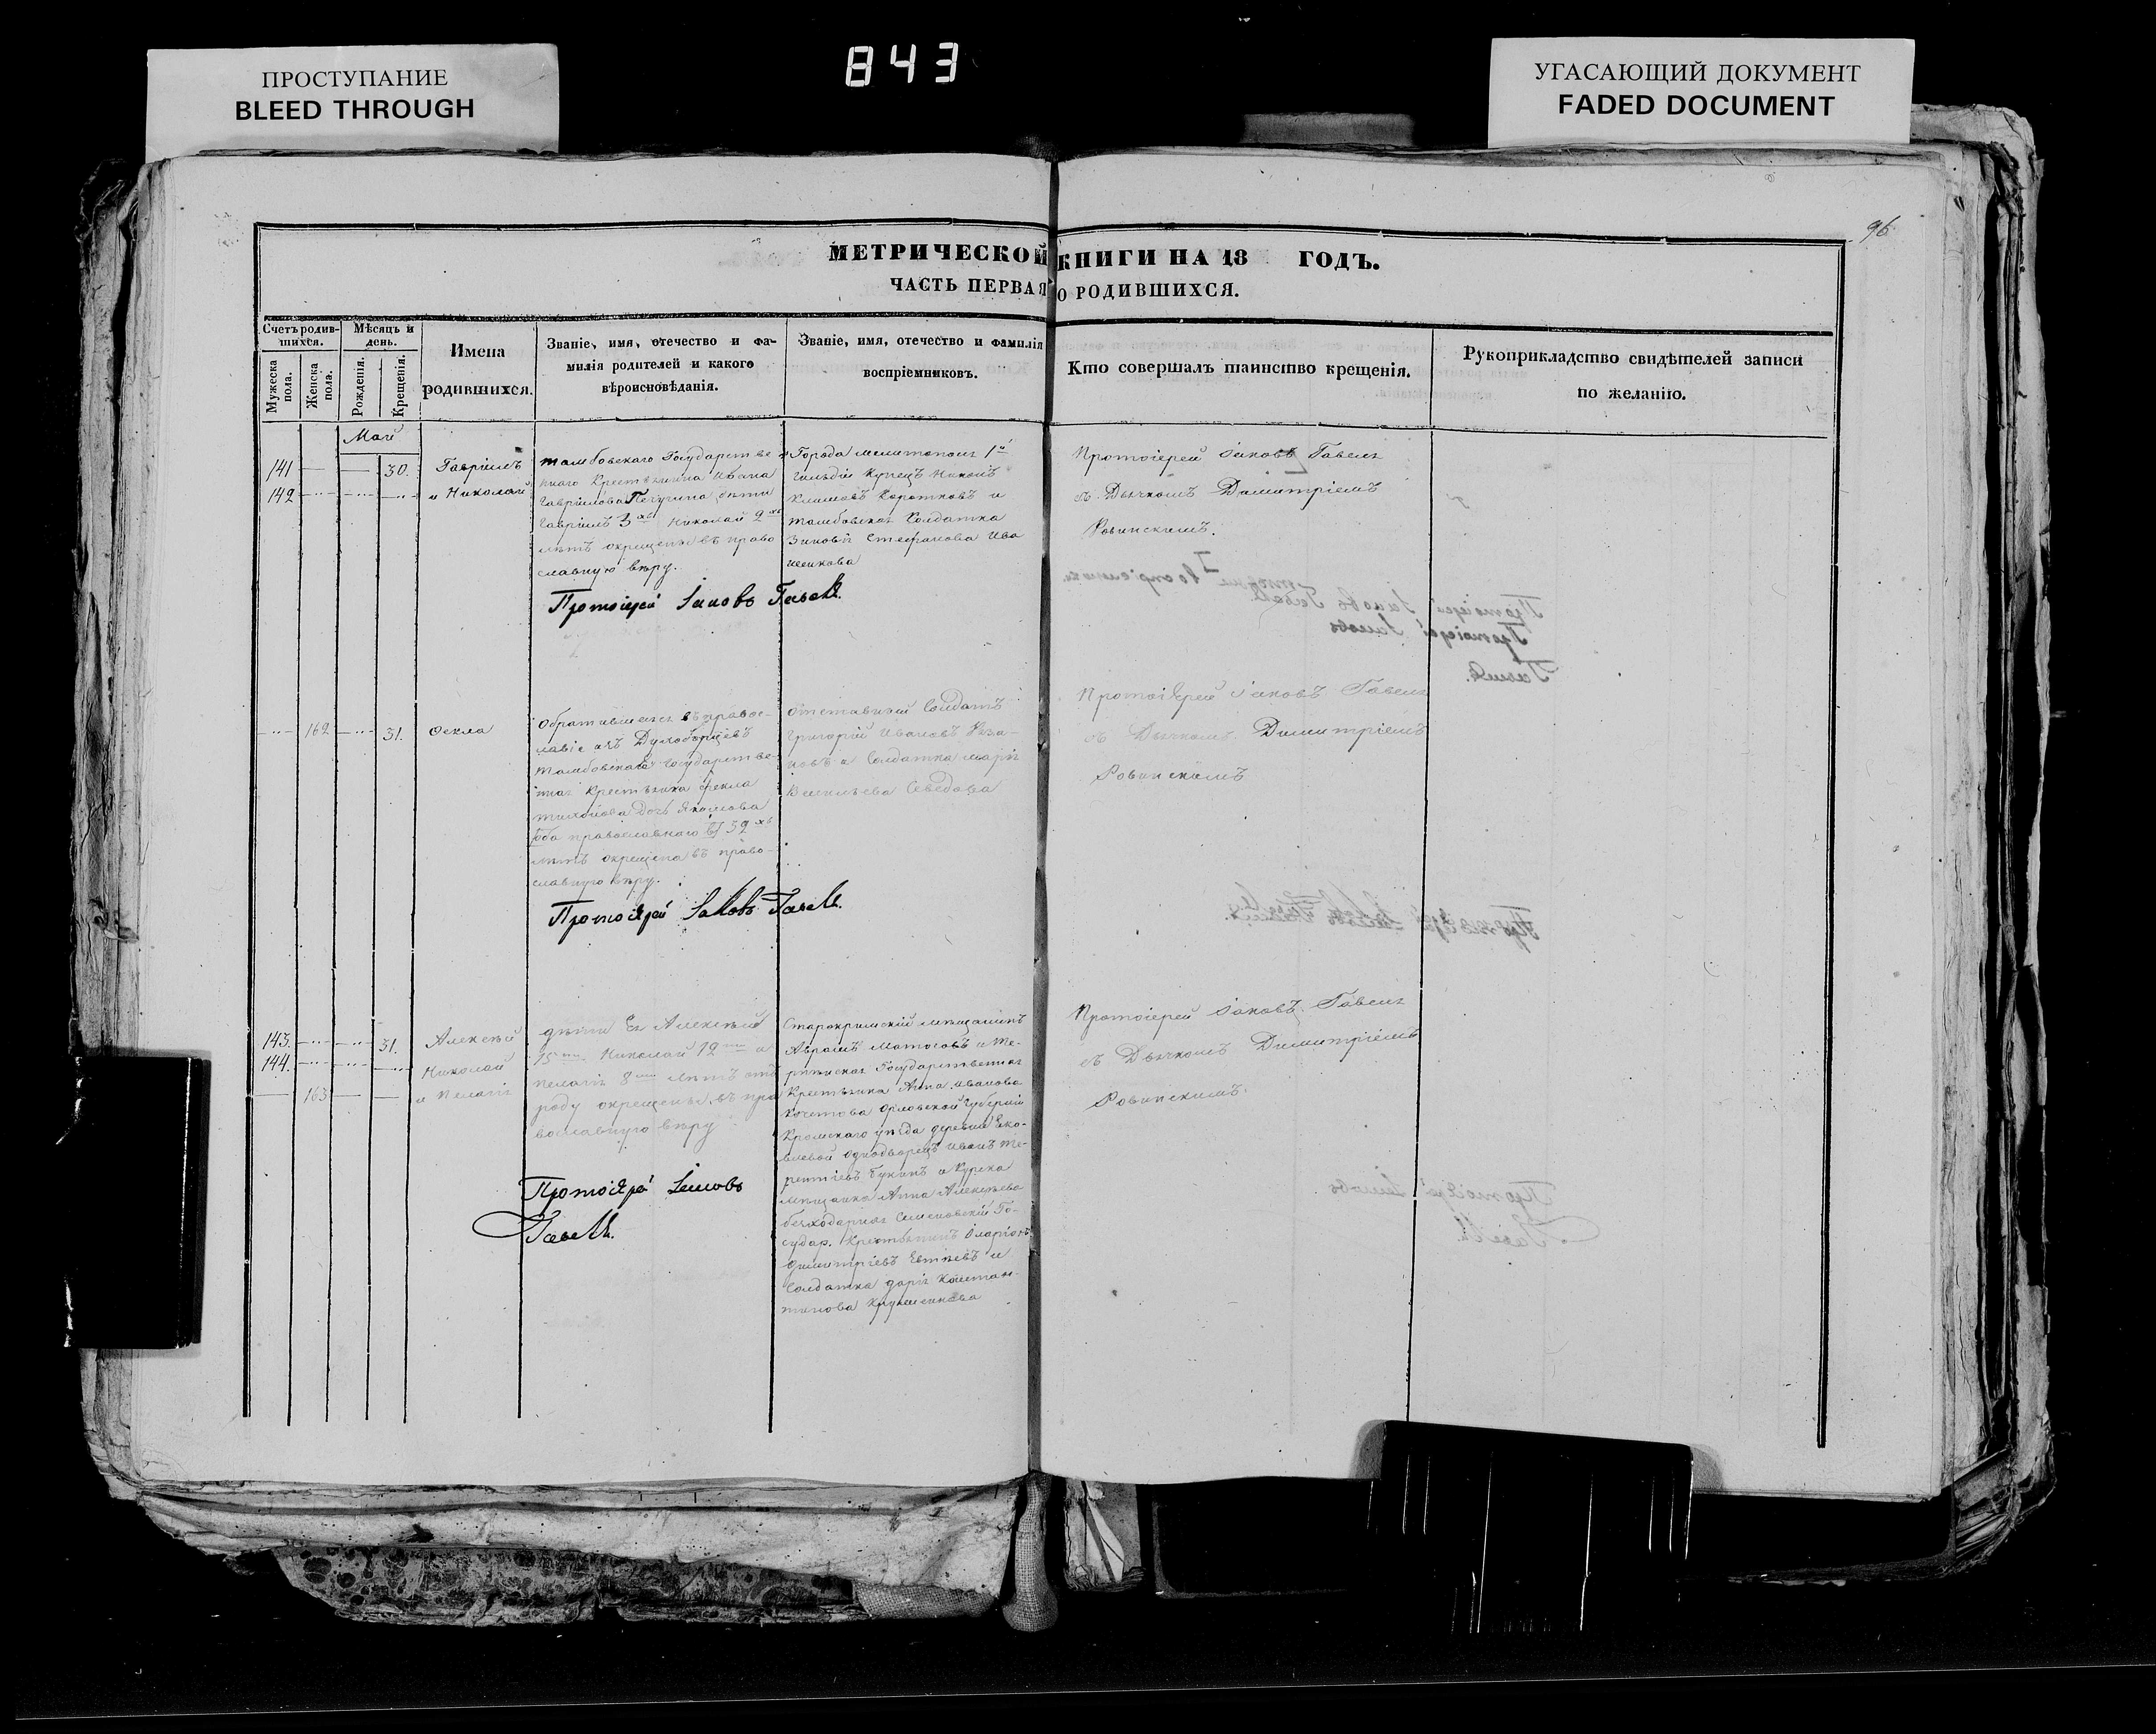 843
ПРОСТУПАНИЕ
BLEED THROUGH
УГАСАЮЩИЙ ДОКУМЕНТ
FADED DOCUMENT
96
МЕТРИЧЕСКОЙ КНИГИ НА 18 ГОДЪ.
ЧАСТЬ ПЕРВАЯ О РОДИВШИХСЯ.
Счетъ родив-
шихся.
Мужеска
пола.
Женска
пола.
Мѣсяцъ и
день.
Рожденія.
Крещенія.
Имена
родившихся.
Званіе, имя, отечество и фа-
милія родителей и какого
вѣроисповѣданія.
Званіе, имя, отечество и фамилія
воспріемниковъ.
Кто совершалъ таинство крещенія.
Рукоприкладство свидѣтелей записи
по желанію.
Май
141
142
30.
Гавріилъ
и Николай
Тамбовскаго Государстве
ннаго Крестьянина Ивана
Гаврілова дѣти
Гавріилъ 3хъ Николай 2хъ
лѣтъ окрещены въ право
славную вѣру.
Протоіерей Іаковъ
Города Мелитополя 1й
Гильдіи Купецъ
Климовъ Коротковъ и
Тамбовская Солдатка
Стефанова Ива
шикова
Протоіерей Іаковъ
съ Дьячкомъ Димитріемъ
Ровинскимъ.
162
31.
Фекла
Обратившаяся въ правос-
лавіе изъ Духоборцевъ
Тамбовская Государстве-
ная Крестьянка Фекла
Тихонова Дочь Якимова
православнаго 32хъ
лѣтъ окрещена въ право-
славную вѣру.
Протоіерей Іаковъ
Отставной Солдатъ
Григорій Ивановъ
новъ и Солдатка Марія
Васильева
Протоіерей Іаковъ
съ Дьячкомъ Димитріемъ
Ровинскимъ
143.
144.
163
31.
Алексѣй
Николай
и Пелагія
Дѣти Ея Алексѣй
15ти Николай 12ти и
Пелагія 8ми лѣтъ отъ
роду окрещены въ пра
вославную вѣру
Протоіерей Іаковъ
Старокримскій мѣщанинъ
Аврамъ и Те-
Государственная
Крестьянка Анна Иванова
Кочетова Орловской Губерніи
Кромскаго уѣзда деревни
Однодворецъ Иванъ Те-
рентіевъ и Курска
мѣщанка Анна Алексѣева
Го-
судар. Крестьянинъ Іларіонъ
Димитріевъ и
Солдатка Дарія Констан-
тинова
Протоіерей Іаковъ
съ Дьячкомъ Димитріемъ
Ровинскимъ.